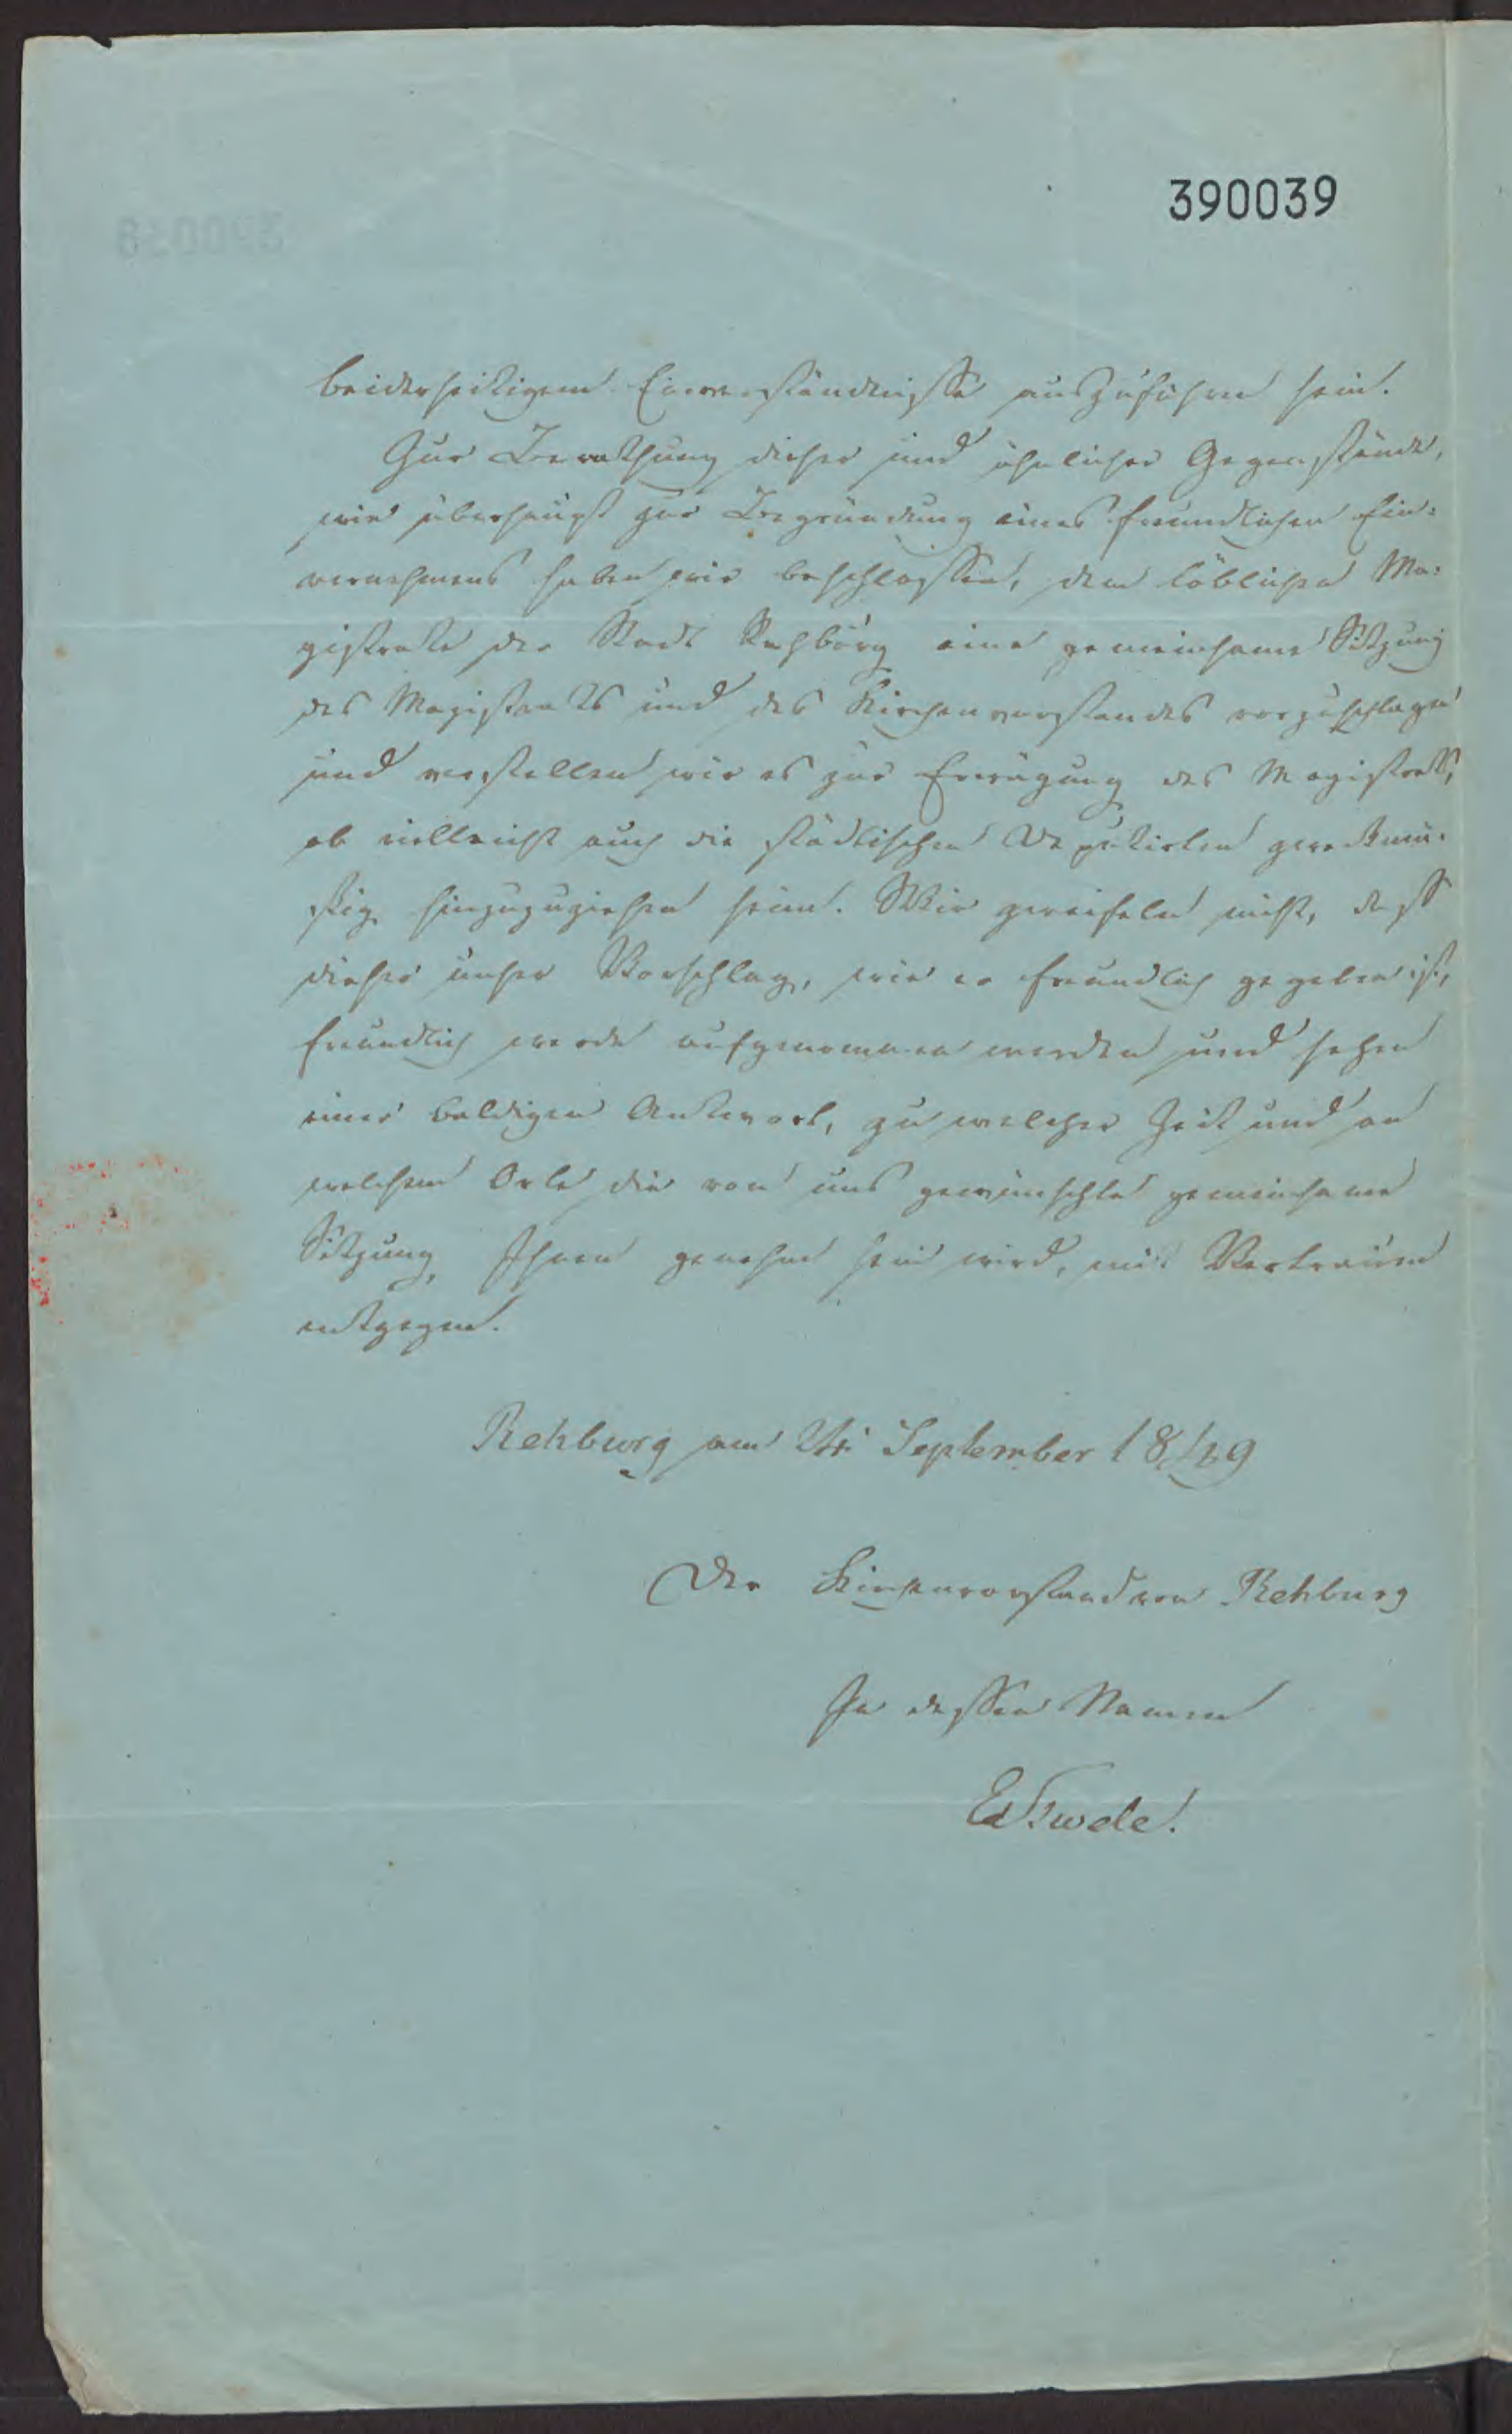 390039
beiderseitigem Einverständnisse auszuführen sein.
Zur Berathung dieser und ähnlicher Gegenstände,
wie überhaupt zur Begründung eines freundlichen Ein-
vernehmens haben wir beschlossen, dem löblichen Ma-
gistrate der Stadt Rehburg eine gemeinsame Sitzung
des Magistrats und des Kirchenvorstandes vorzuschlagen
und verstellen wir es zur Erwägung des Magistrats,
ob vielleicht auch die städtischen Deputirten zweckmä-
ßig hinzuzuziehen seien. Wir zweifeln nicht, daß
dieser unser Vorschlag, wie er freundlich gegeben ist,
freundlich werde aufgenommen werden und sehen
einer baldigen Antwort, zu welcher Zeit und an
welchem Orte die von uns gewünschte gemeinsame
Sitzung Ihnen genehm sein wird, mit Vertrauen
entgegen.
Rehburg am September 1849
Der Kirchenvorstand von Rehburg
In dessen Namen